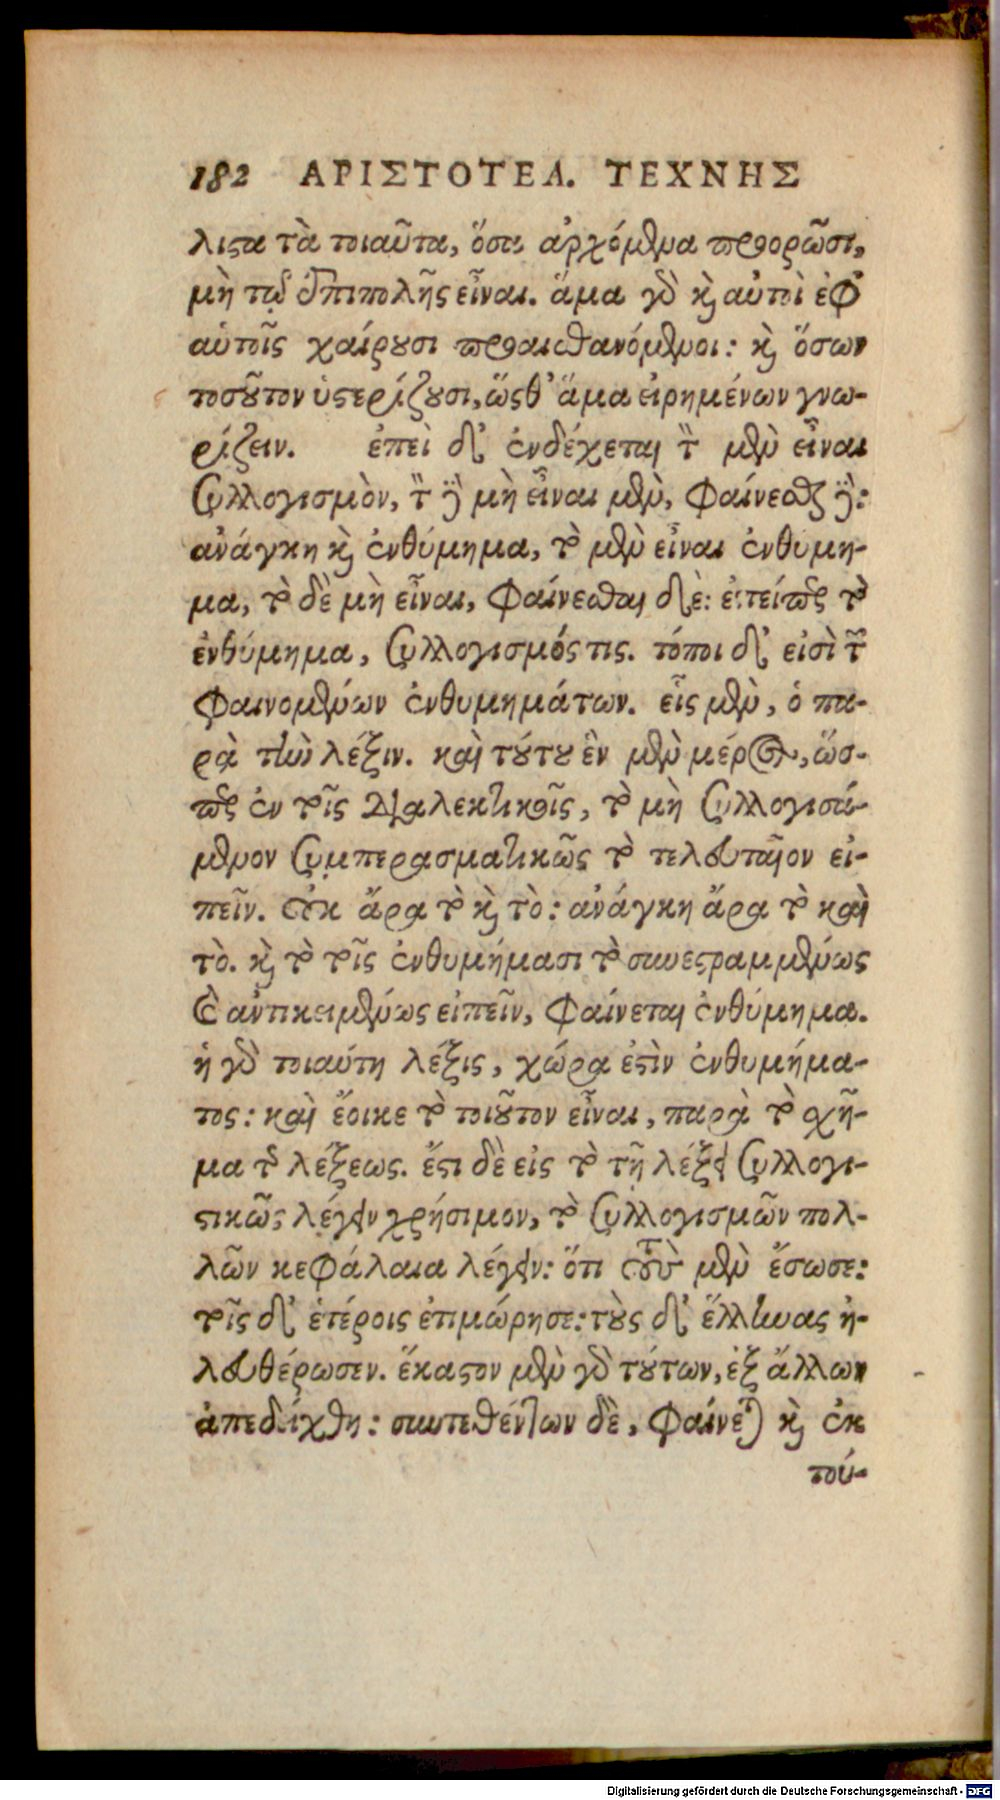 182 ΑΡΙΣΤΟΤΕΛ. ΤΕΧΝΗΣ
λιςα τὰ τοιαῦτα, ὅσα ἀρχόμενα προορῶσι,
μὴ τῷ ἐπιπολῆς εἶναι. ἅμα γὸ κὶ αὐτοὶ ἐφ'
αὑτοῖς χαίρουσι προαισθανόμενοι: κὶ ὅσων
τοσοῦτον ὑςερίζουσι, ὥσθ' ἅμα εἰρημένων γνω-
ρίζειν. ἐπεὶ δ' ἐνδέχεται τὸν μὲν εἶναι
συλλογισμὸν, τὸν δὲ μὴ εἶναι μὲν, φαίνεσθαι δέ:
ἀνάγκη κὶ ἐνθύμημα, τὸ μὲν εἶναι ἐνθύμη-
μα, τὸ δὲ μὴ εἶναι, φαίνεσθαι δέ: ἐπείπερ τὸ
ἐνθύμημα, συλλογισμός τις. τόποι δ' εἰσὶ τῶν
φαινομένων ἐνθυμημάτων. εἷς μὲν, ὁ πα-
ρὰ τὴν λέξιν. καὶ τούτου ἓν μὲν μέρος, ὥσ-
περ ἐν τοῖς διαλεκτικοῖς, τὸ μὴ συλλογισά-
μενον συμπερασματικῶς τὸ τελευταῖον εἰ-
πεῖν. οὐκ ἄρα τὸ κὶ τὸ: ἀνάγκη ἄρα τὸ καὶ
τὸ. κὶ τὸ τοῖς ἐνθυμήμασι τὸ συνεςραμμένως
καὶ ἀντικειμένως εἰπεῖν, φαίνεται ἐνθύμημα.
ἡ γὸ τοιαύτη λέξις, χώρα ἐςὶν ἐνθυμήμα-
τος: καὶ ἔοικε τὸ τοιοῦτον εἶναι, παρὰ τὸ σχῆ-
μα τῆς λέξεως. ἔςι δὲ εἰς τὸ τῇ λέξει συλλογι-
ςικῶς λέγειν χρήσιμον, τὸ συλλογισμῶν πολ-
λῶν κεφάλαια λέγειν: ὅτι τοὺς μὲν ἔσωσε:
τοῖς δ' ἑτέροις ἐτιμώρησε: τοὺς δ' ἕλληνας ἠ-
λευθέρωσεν. ἕκαςον μὲν γὸ τούτων, ἐξ ἄλλων
ἀπεδείχθη: συντεθέντων δὲ, φαίνεται κὶ ἐκ
τού-
Digitalisierung gefördert durch die Deutsche Forschungsgemeinschaft - DFG